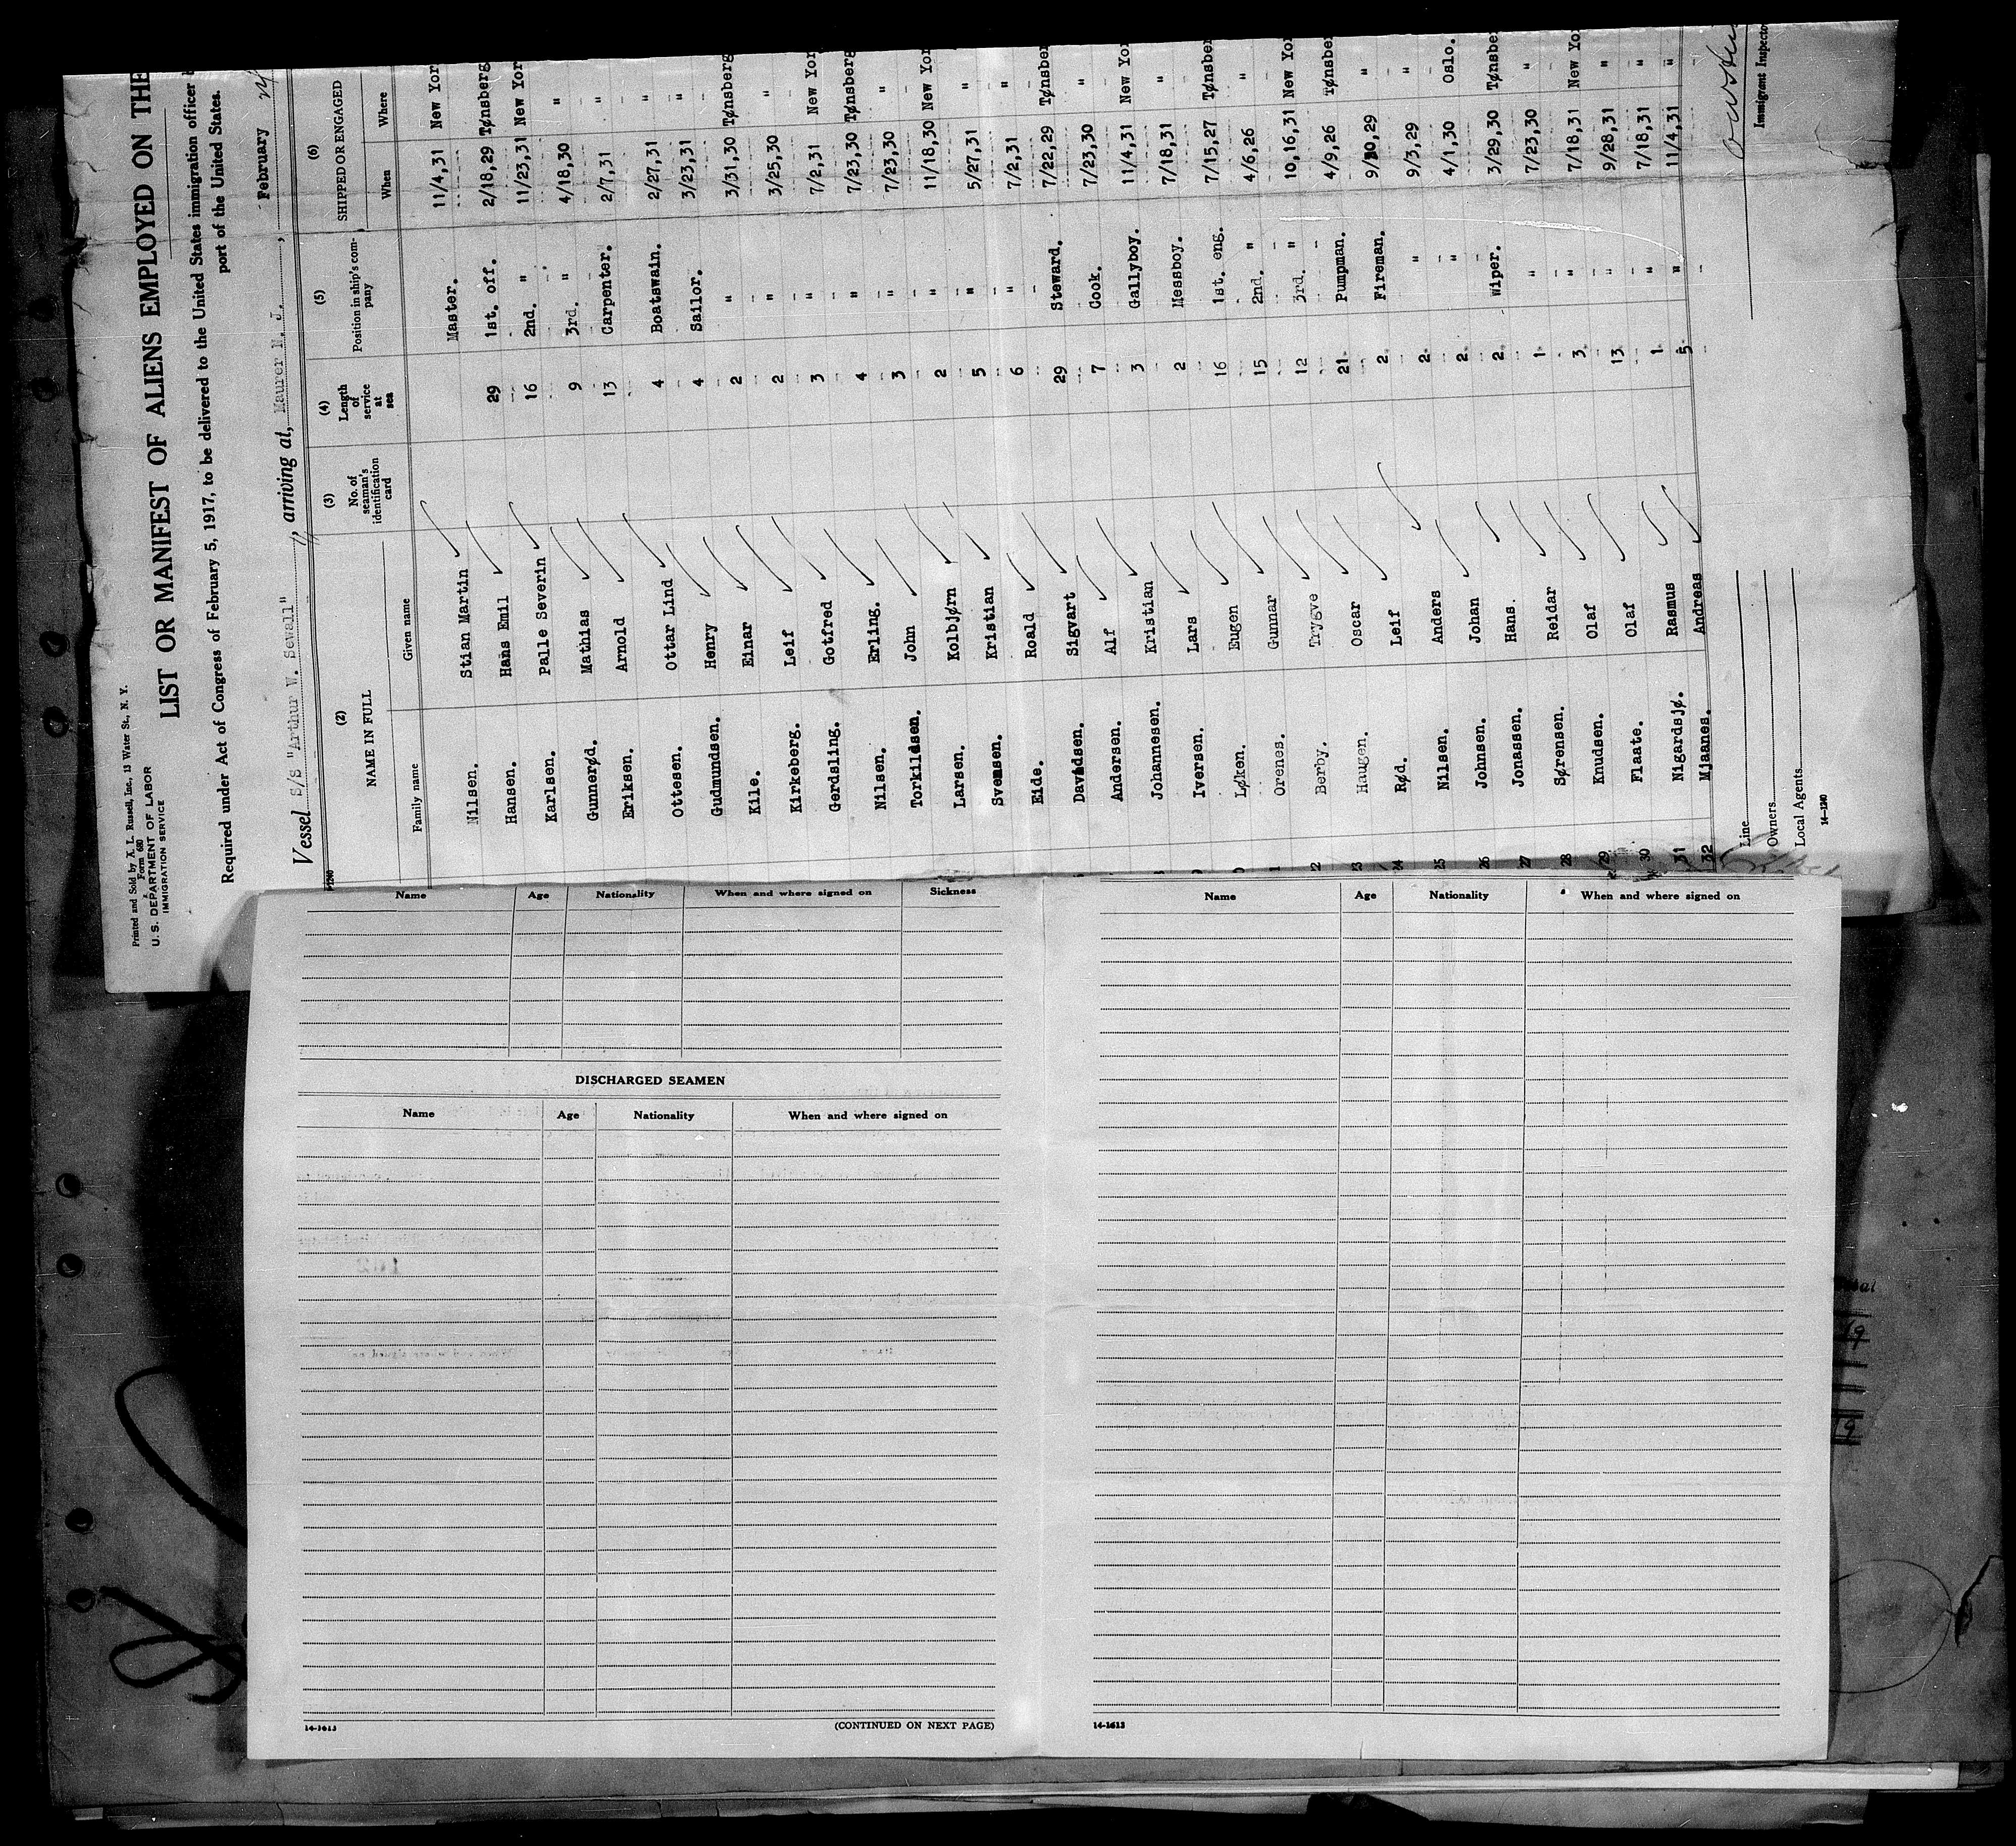 Printed and Sold by A. L. Russell, Inc., 13 Water St., N. Y.
Form 680
U. S. DEPARTMENT OF LABOR
IMMIGRATION SERVICE
LIST OR MANIFEST OF ALIENS EMPLOYED ON THE
Required under Act of Congress of February 5, 1917, to be delivered to the United States immigration officer
port of the United States.
Vessel S/S "Arthur W. Sewall", arriving at, Maurer N. J., February 24
(2) (3) (4) (5) (6)
NAME IN FULL No. of seaman's identification card Length of service at sea Position in ship's company SHIPPED OR ENGAGED
Family name Given name When Where
Nilsen. Stian Martin Master. 11/4,31 New Yor
Hansen. Hans Emil 29 1st. off. 2/18,29 Tønsberg
Karlsen. Palle Severin 16 2nd. " 11/23,31 New Yor
Gunnerød. Mathias 9 3rd. " 4/18,30 "
Eriksen. Arnold 13 Carpenter. 2/7,31 "
Ottesen. Ottar Lind 4 Boatswain. 2/27,31 "
Gudmundsen. Henry 4 Sailor. 3/23,31 "
Kile. Einar 2 " 3/31,30 Tønsberg
Kirkeberg. Leif 2 " 3/25,30 "
Gerdsling. Gotfred 3 " 7/2,31 New Yor
Nilsen. Erling. 4 " 7/23,30 Tønsberg
Torkildsen. John 3 " 7/23,30 "
Larsen. Kolbjørn 2 " 11/18,30 New Yor
Svensen. Kristian 5 " 5/27,31 "
Eide. Roald 6 " 7/2,31 "
Davidsen. Sigvart 29 Steward. 7/22,29 Tønsber
Andersen. Alf 7 Cook. 7/23,30 "
Johannesen. Kristian 3 Gallyboy. 11/4,31 New Yor
Iversen. Lars 2 Messboy. 7/18,31 "
Løken. Eugen 16 1st. eng. 7/15,27 Tønsber
Orenes. Gunnar 15 2nd. " 4/6,26 "
22 Berby. Trygve 12 3rd. " 10,16,31 New Yor
23 Haugen. Oscar 21 Pumpman. 4/9,26 Tønsber
24 Rød. Leif 2 Fireman. 9/30,29 "
25 Nilsen. Anders 2 " 9/3,29 "
26 Johnsen. Johan 2 " 4/1,30 Oslo.
27 Jonassen. Hans. 2 Wiper. 3/29,30 Tønsber
28 Sørensen. Reidar 1 " 7/23,30 "
29 Knudsen. Olaf 3 " 7/18,31 New Yo
30 Flaate. Olaf 13 " 9/28,31 "
31 Nigardsjø. Rasmus 1 " 7/18,31 "
32 Mjaanes. Andreas 5 " 11/4,31 "
Line
Owners
Local Agents
14-1240
Immigrant Inspecto
Name Age Nationality When and where signed on Sickness
DISCHARGED SEAMEN
Name Age Nationality When and where signed on
14-1613 (CONTINUED ON NEXT PAGE)
Name Age Nationality When and where signed on
14-1613